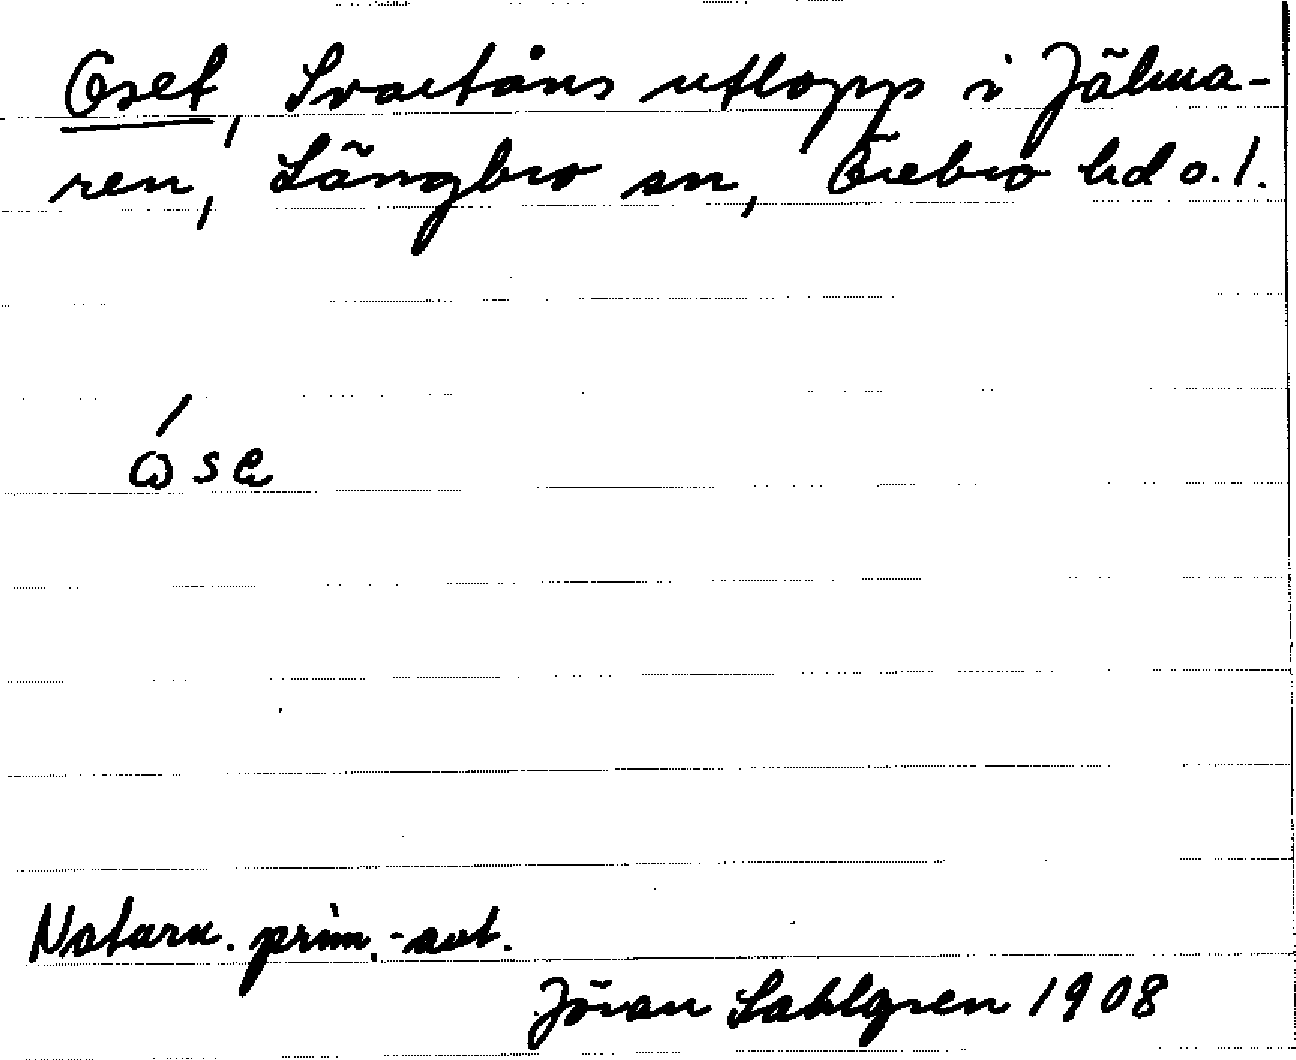 Oset, Svartåns utlopp i Jälma-
ren, Längbro sn, Örebro hd o. l.
ɷ́se
Notaru. prim.-avt.
Jöran Sahlgren 1908